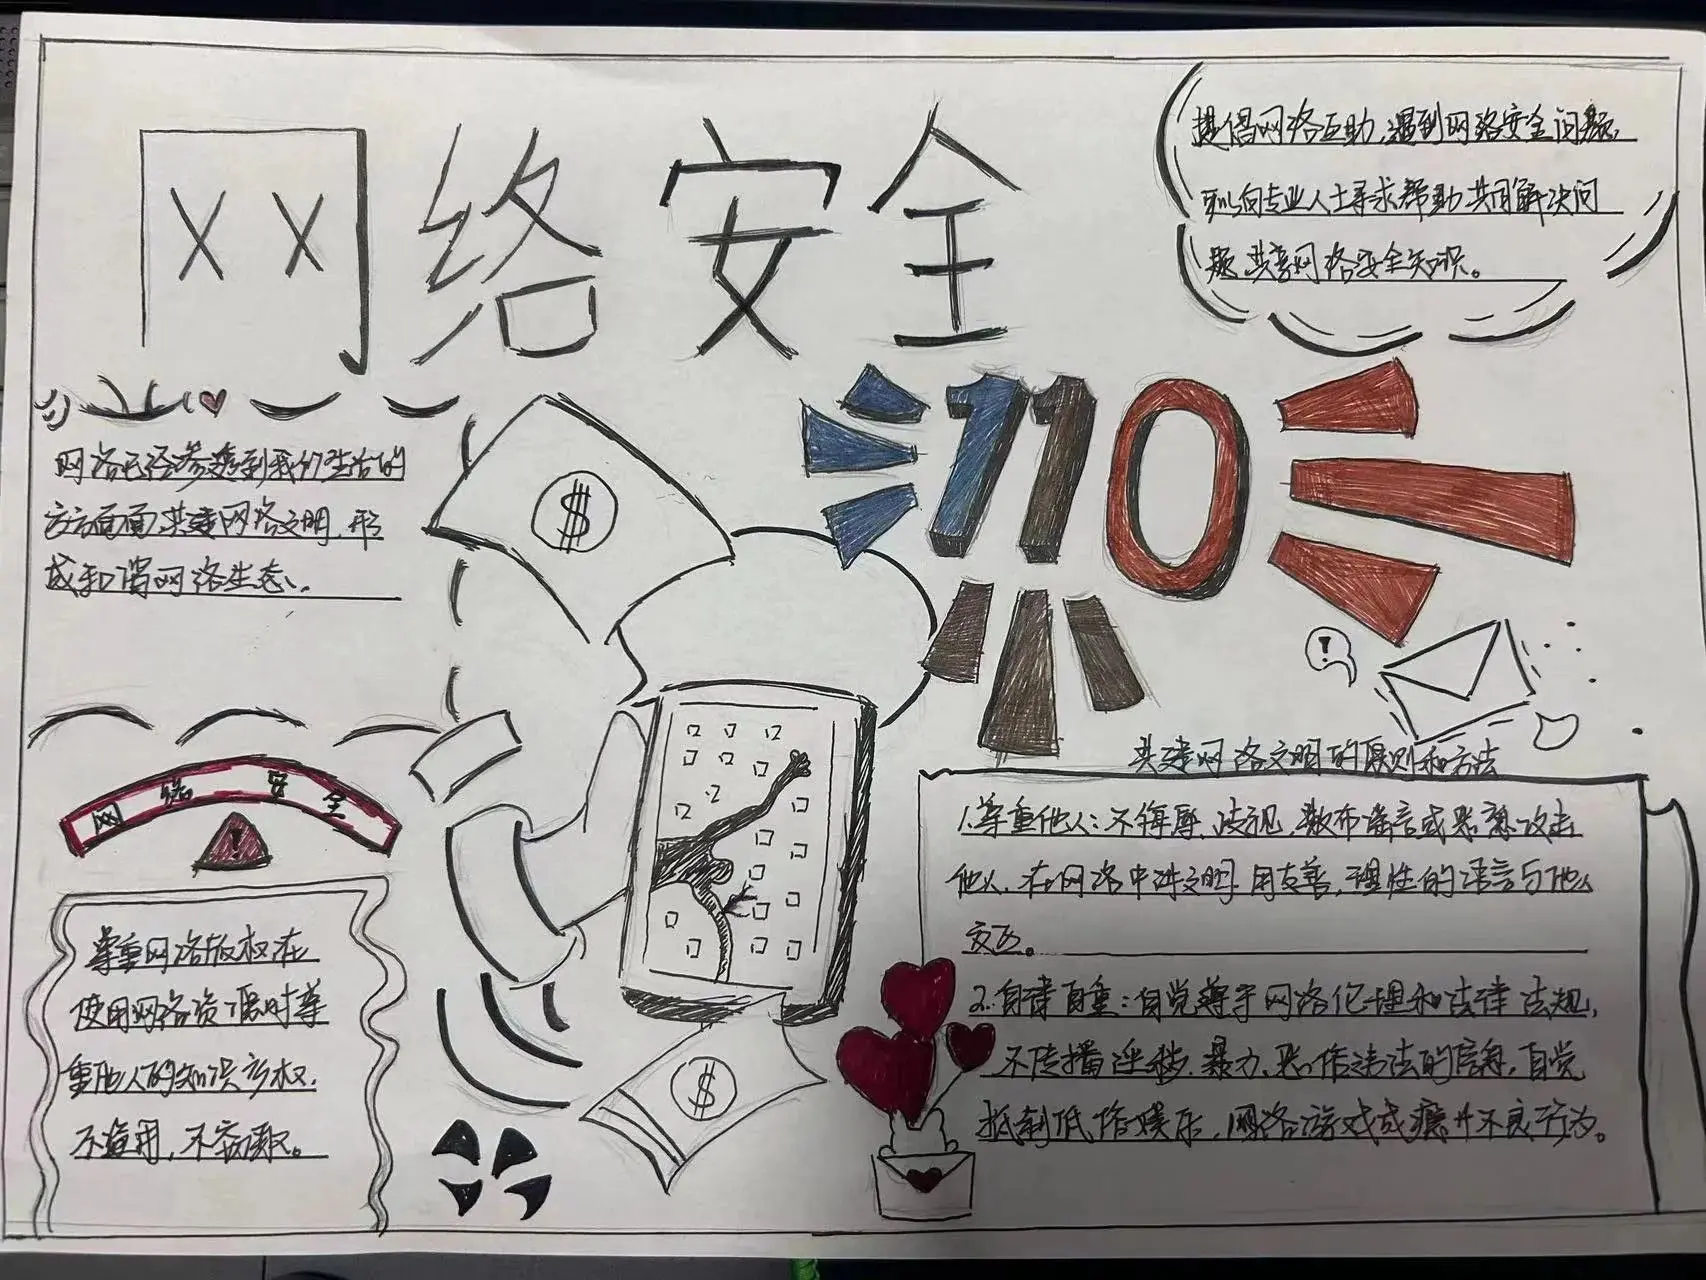 网络安全
提倡网络互助,遇到网络安全问题,
可以向专业人士寻求帮助共同解决问
题,共享网络安全知识。
110
网络已经渗透到我们生活的
方方面面共建网络文明,形
成和谐网络生态,。
$
!
网络安全
!
共建网络文明的原则和方法
1.尊重他人:不侮辱,歧视,散布谣言或恶意攻击
他人,在网络中讲文明,用友善,理性的语言与他人
交互。
2.自律自重:自觉遵守网络伦理和法律法规,
不传播淫秽,暴力、恶俗违法的信息,自觉
抵制低俗娱乐,网络游戏成瘾等不良行为。
尊重网络版权在
使用网络资源时尊
重他人的知识产权,
不盗用,不窃取。
$